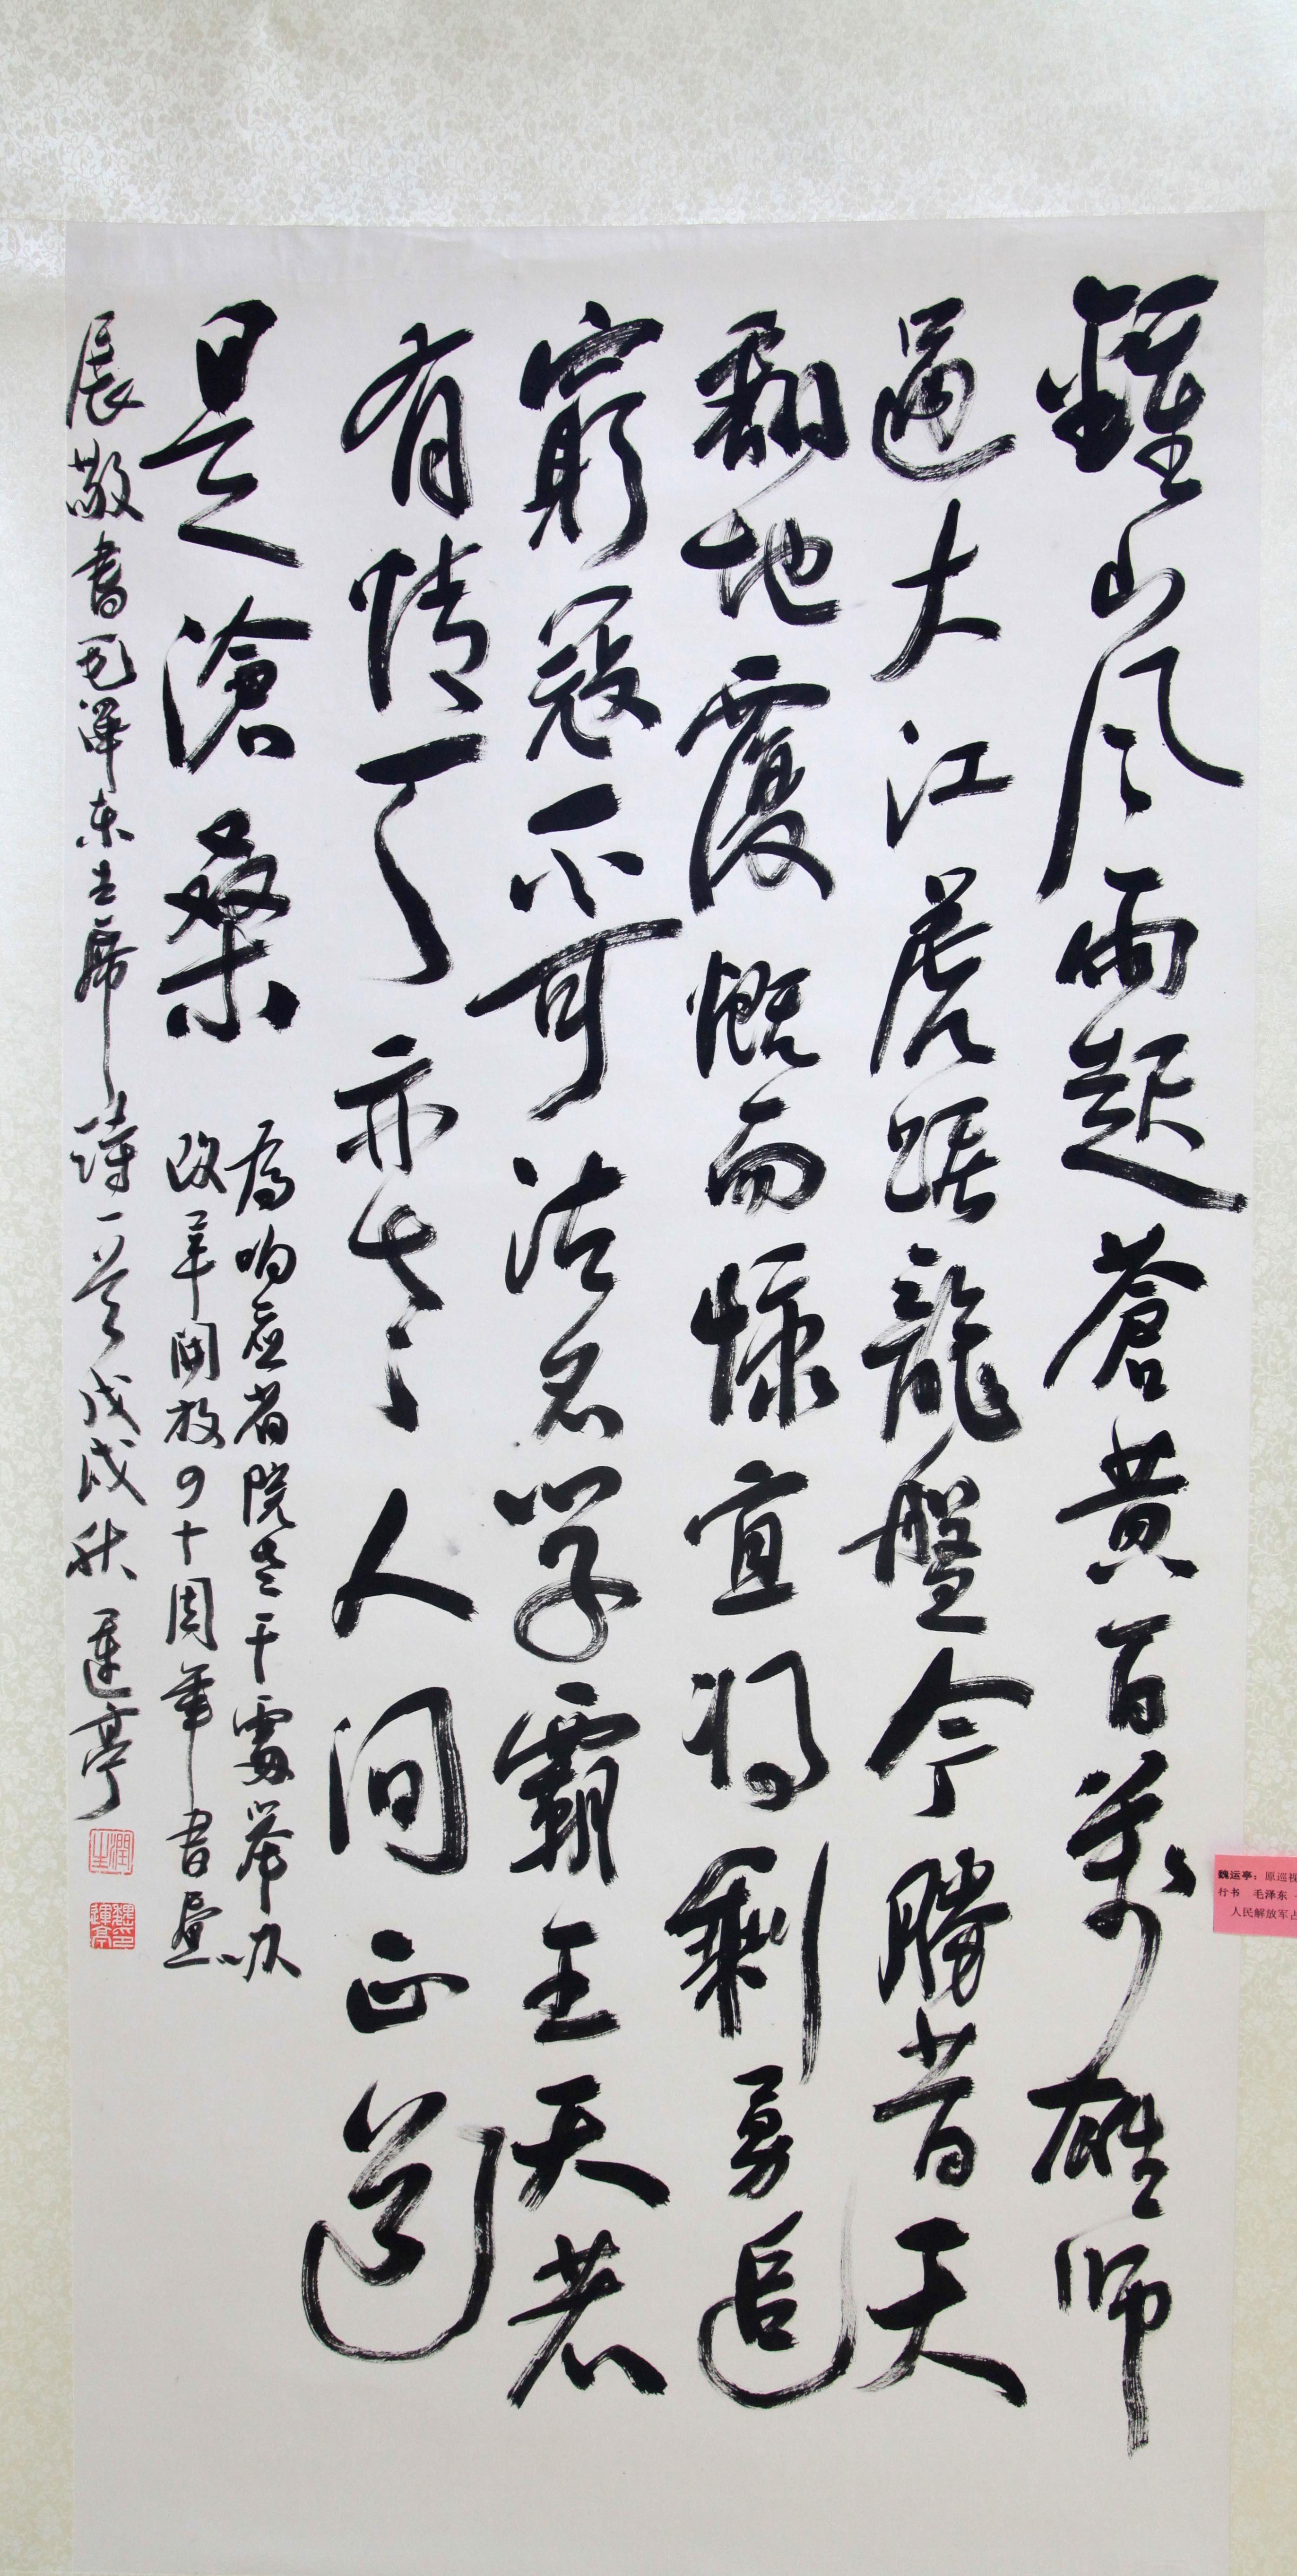 鍾山风雨起蒼黄百萬雄师
過大江虎踞龍盤今勝昔天
翻地覆慨而慷宜将剩勇追
窮寇不可沽名学霸王天若
有情天亦老人间正道
是滄桑
為响应省院老干處举办
改革開放四十周年書画
展敬書毛泽东主席詩一首戊戌秋運亭
潤生
魏印運亭
魏运亭：原巡视
行书 毛泽东
人民解放军占